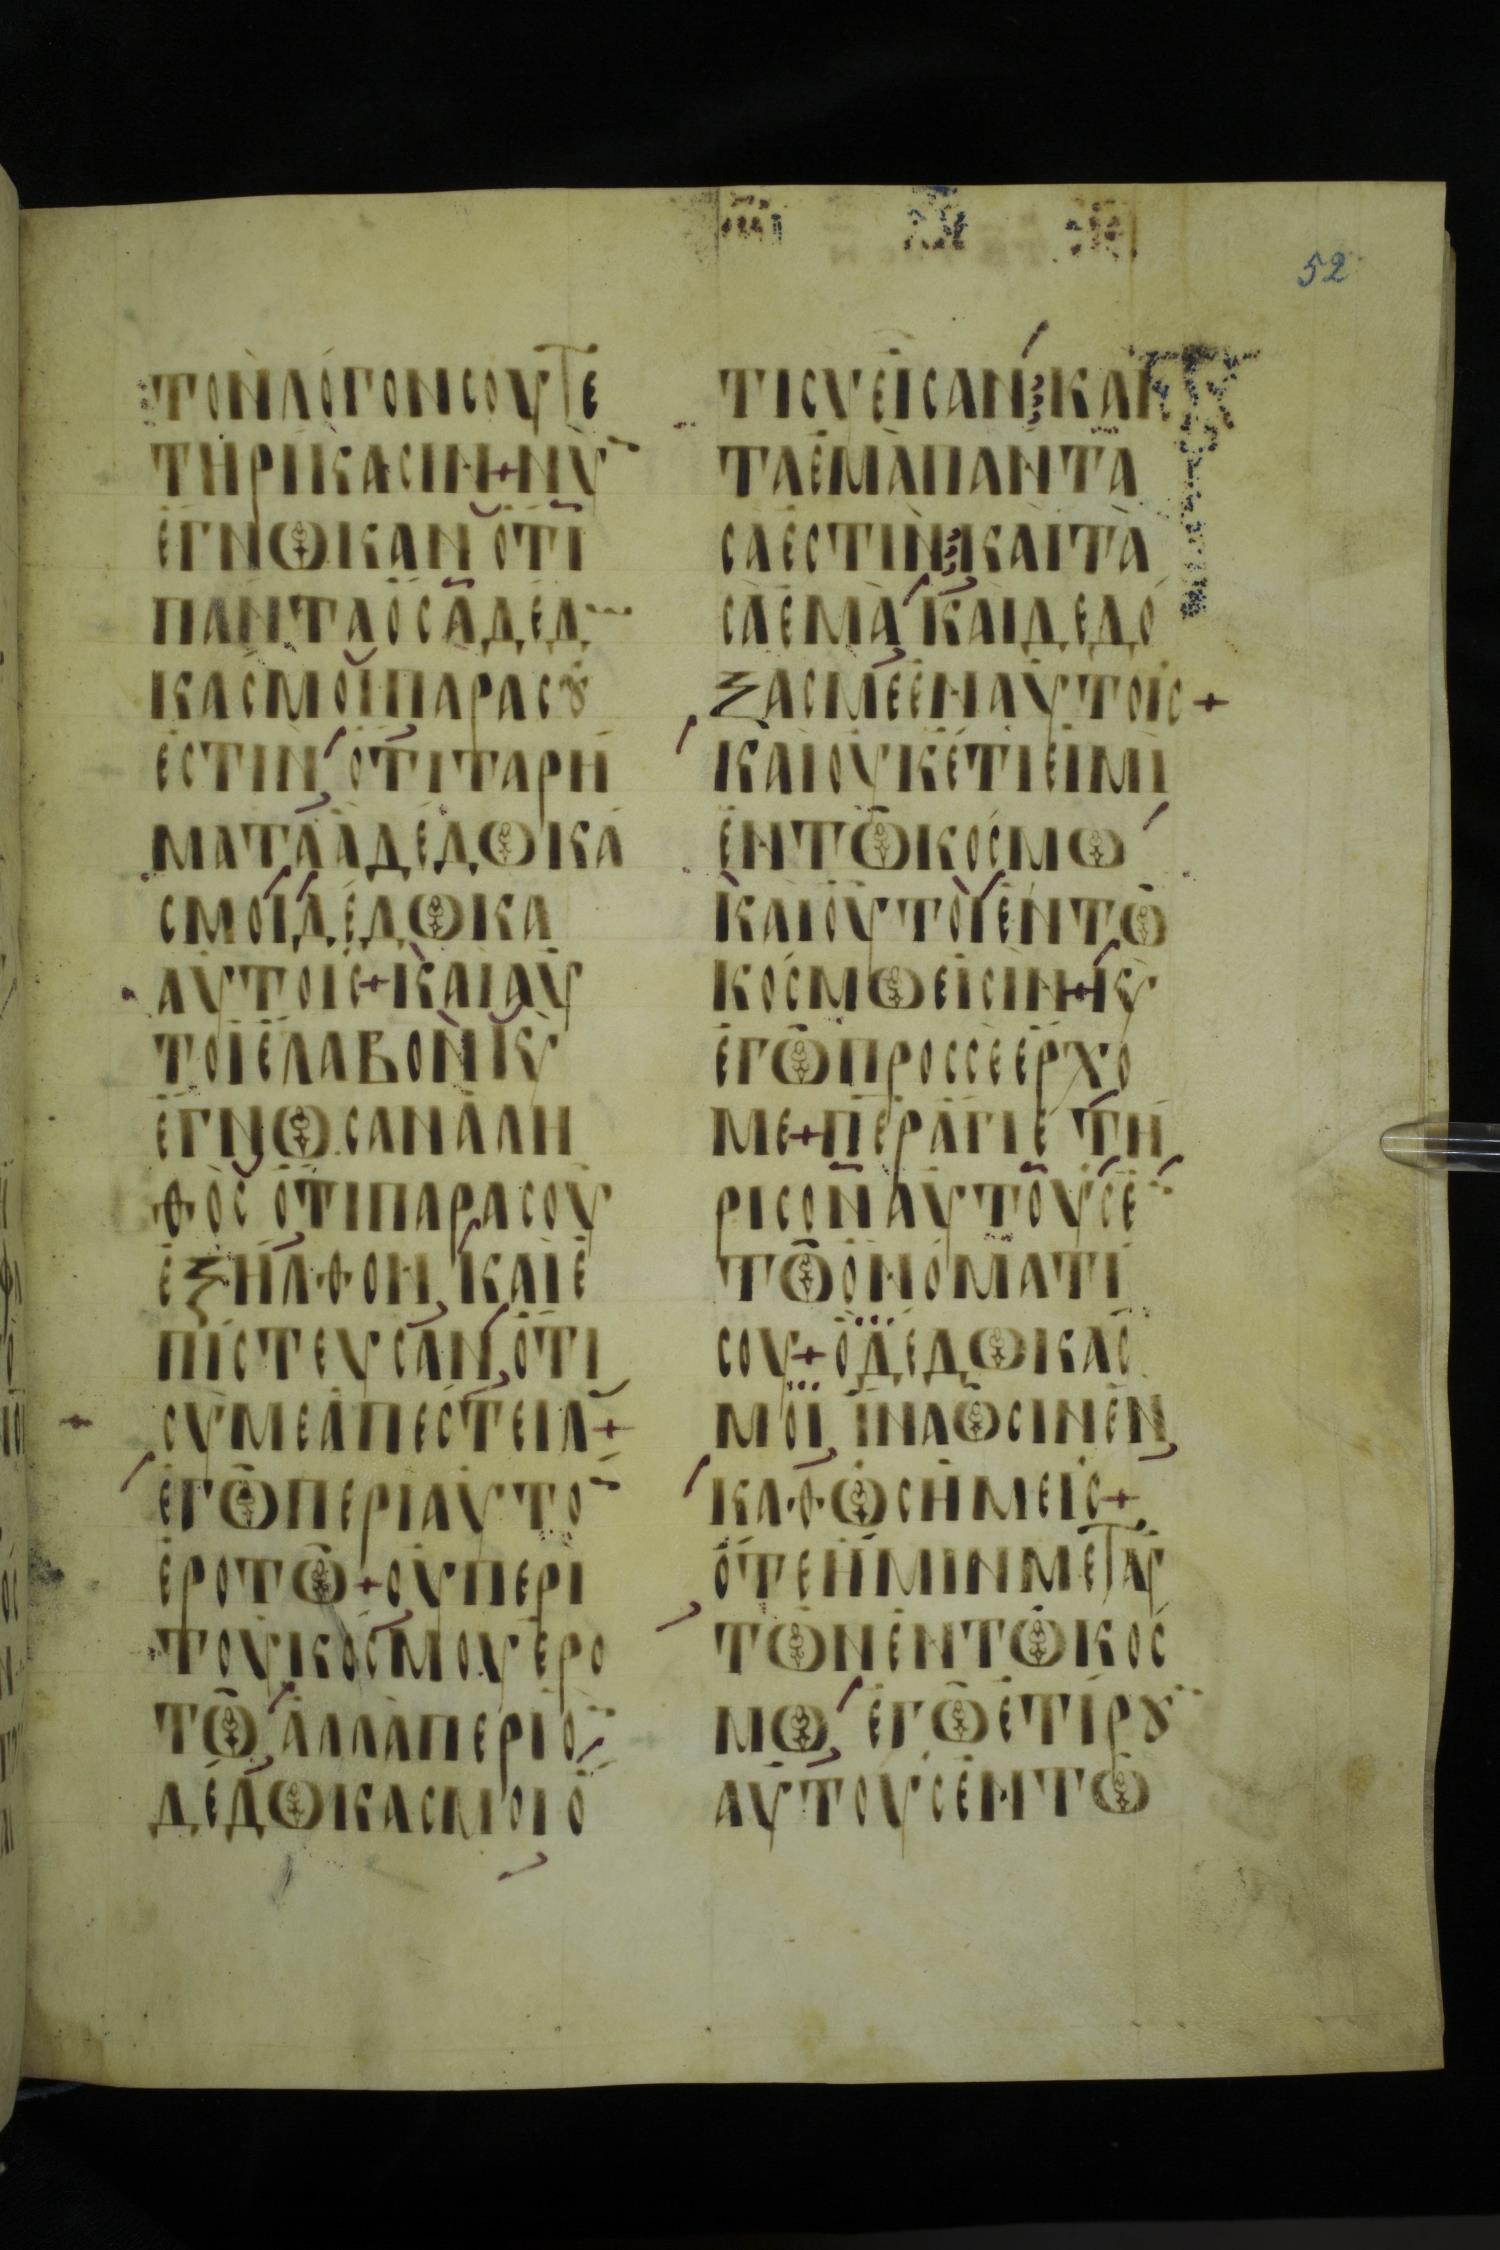 52
ΤΟΝΛΟΓΟΝCΟΥΤΕ
ΤΗΡΙΚΑCΙΝ+ΝΥ
ΕΓΝΩΚΑΝ ΟΤΙ
ΠΑΝΤΑΟCΑΔΕΔ
ΚΑCΜΟΙΠΑΡΑCȣ
ΕCΤΙΝ ΟΤΙΤΑΡΗ
ΜΑΤΑΑΔΕΔΩΚΑ
CΜΟΙΔΕΔΩΚΑ
ΑΥΤΟΙC+ΚΑΙΑΥ
ΤΟΙΕΛΑΒΟΝ ΚΥ
ΕΓΝΩCΑΝΑΛΗ
ΘΟC ΟΤΙΠΑΡΑCΟΥ
ΕΞΗΛΘΟΝ ΚΑΙΕ
ΠΙCΤΕΥCΑΝ ΟΤΙ
CΥΜΕΑΠΕCΤΕΙΛ+
ΕΓΩΠΕΡΙΑΥΤΟ
ΕΡΟΤΩ+ΟΥΠΕΡΙ
ΤΟΥΚΟCΜΟΥΕΡΟ
ΤΩ ΑΛΛΑΠΕΡΙΟ
ΔΕΔΩΚΑCΜΟΙΟ
ΤΙCΥΕΙCΑΝ ΚΑΙ
ΤΑΕΜΑΠΑΝΤΑ
CΑΕCΤΙΝ ΚΑΙΤΑ
CΑΕΜΑ ΚΑΙΔΕΔΟ
ΞΑCΜΕΕΝΑΥΤΟΙC+
ΚΑΙΟΥΚΕΤΙΕΙΜΙ
ΕΝΤΩΚΟCΜΩ
ΚΑΙΟΥΤΟΙΕΝΤΩ
ΚΟCΜΩΕΙCΙΝ+ΚΥ
ΕΓΩΠΡΟCCΕΕΡΧΟ
ΜΕ+ΠΕΡΑΓΙΕ ΤΗ
ΡΙCΟΝΑΥΤΟΥCΕ
ΤΩΟΝΟΜΑΤΙ
CΟΥ+ΟΔΕΔΩΚΑC
ΜΟΙ ΙΝΑΩCΙΝΕΝ
ΚΑΘΩCΗΜΕΙC+
ΟΤΕΗΜΙΝΜΕΤΑΥ
ΤΩΝΕΝΤΩΚΟC
ΜΩ ΕΓΩΕΤΙΡȣ
ΑΥΤΟΥCΕΝΤΩ